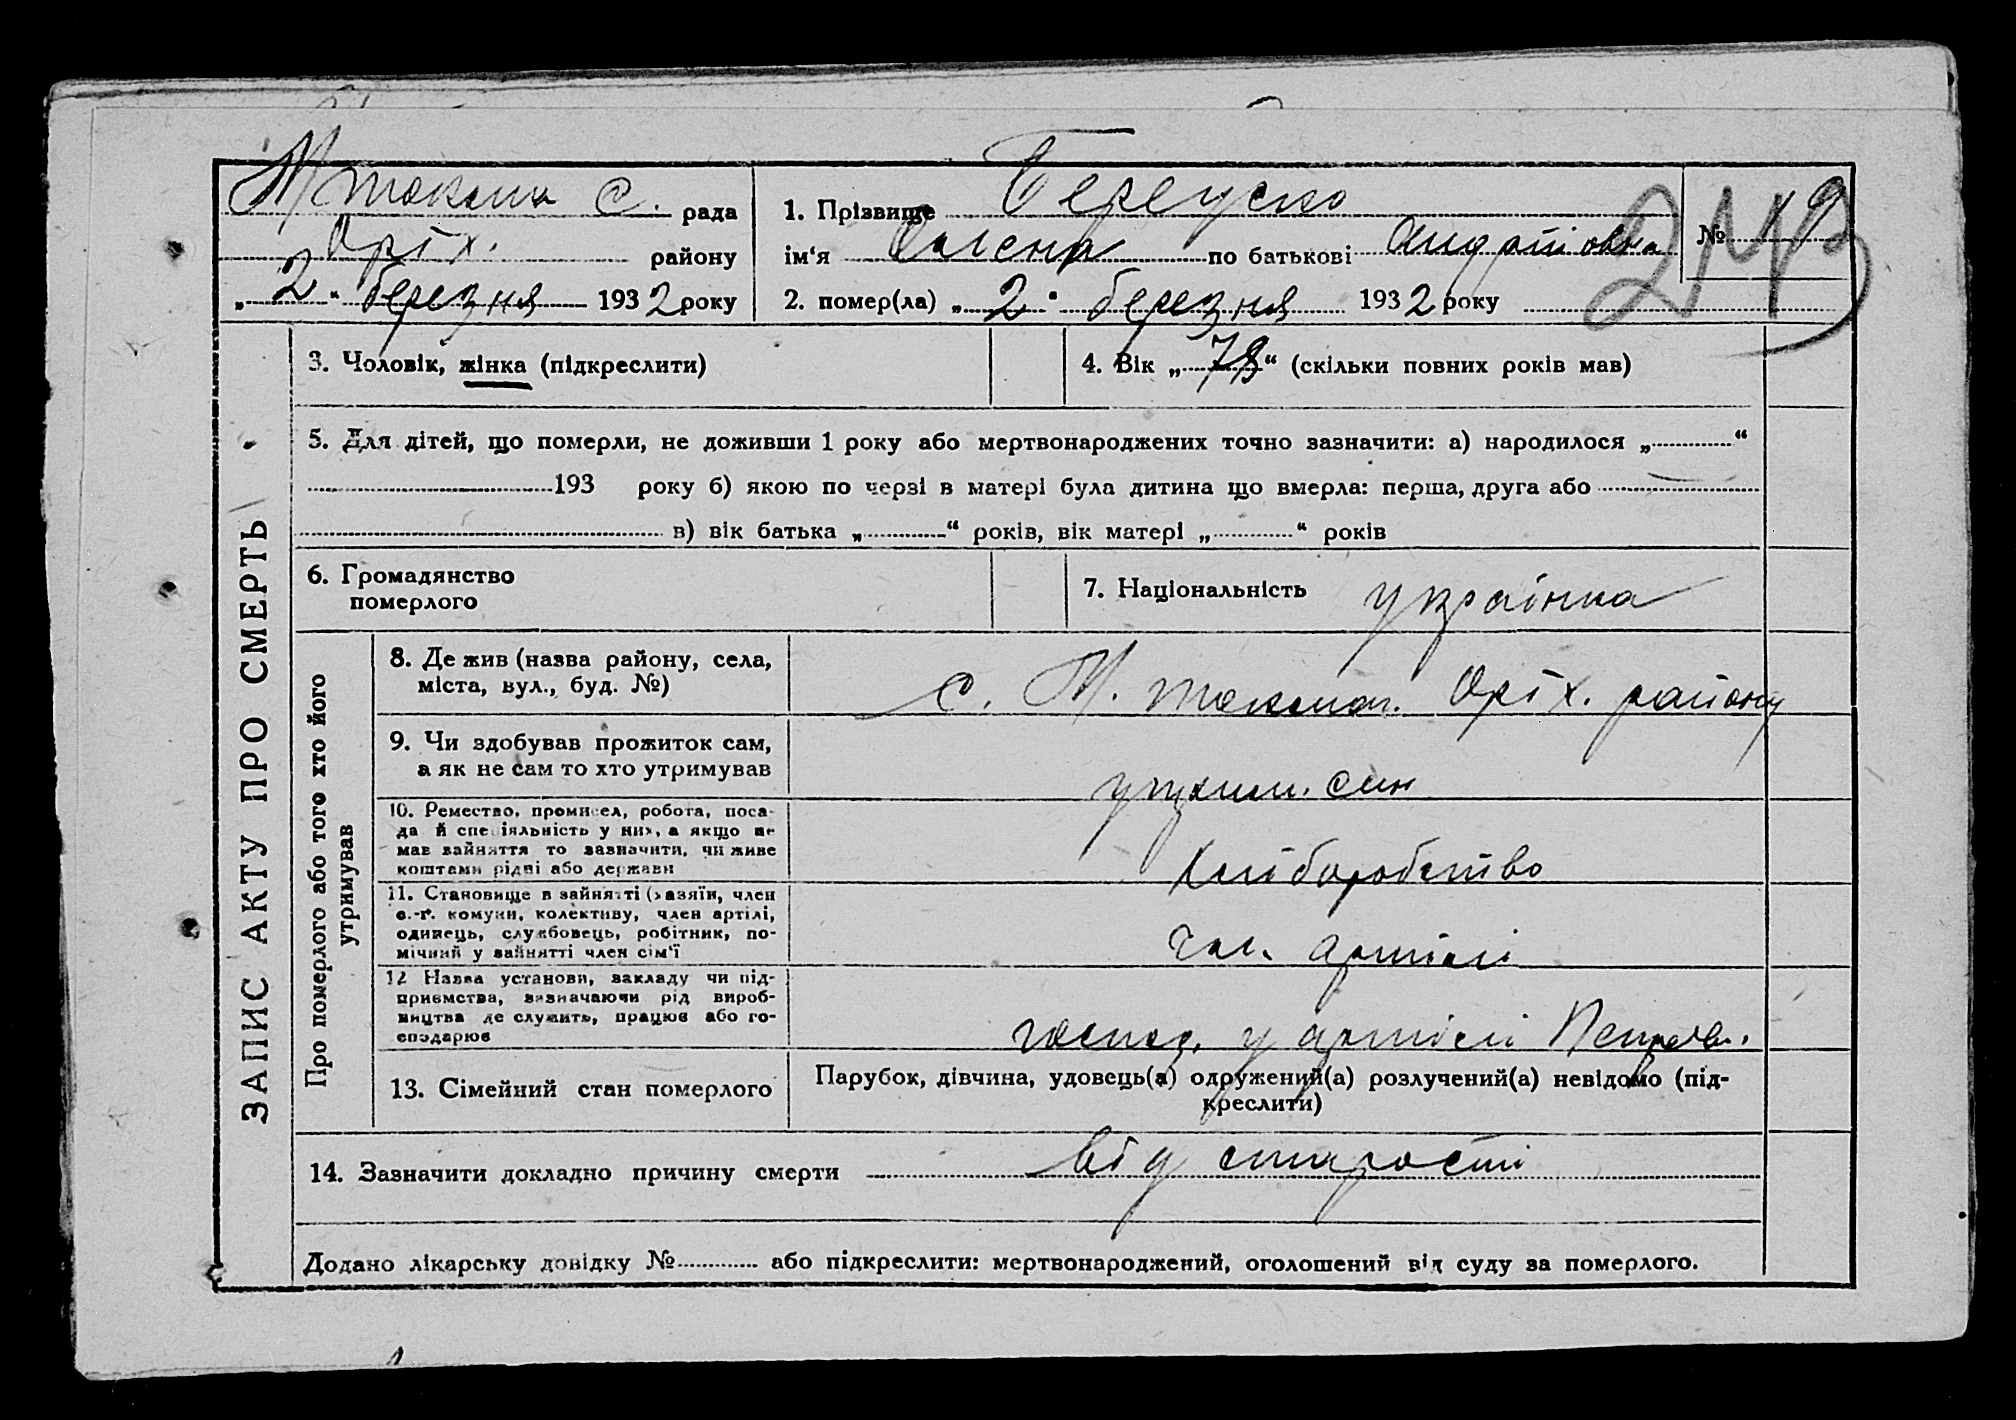 М токмак С. рада
Оріх. району
„ 2 " березня 1932 року
1. Прізвище
ім'я Олена по батькові Андріівна
2. помер(ла) „ 2 " березня 1932 року
№ 19
ЗАПИС АКТУ ПРО СМЕРТЬ
3. Чоловік, жінка (підкреслити)
4. Вік „ 78 “ (скільки повних років мав)
5. Для дітей, що померли, не доживши 1 року або мертвонароджених точно зазначити: а) народилося „ “
193 року б) якою по черзі в матері була дитина що вмерла: перша, друга або
в) вік батька „ “ років, вік матері „ “ років
6. Громадянство
померлого
7. Національність українка
Про померлого або того хто його
утримував
8. Де жив (назва району, села,
міста, вул., буд. №)
с. М. токмак. Оріх. району
9. Чи здобував прожиток сам,
а як не сам то хто утримував
утрим. син
10. Ремество, промисел, робота, поса-
да й спеціяльність у них, а якщо не
мав зайняття то зазначити, чи живе
коштами рідні або держави
хліборобство
11. Становище в зайнятті (хазяїн, член
с.-г. комуни, колективу, член артілі,
одинець, службовець, робітник, по-
мічний у зайнятті член сім'ї
чл. артілі
12 Назва установи, закладу чи під-
приємства, визначаючи рід вироб-
ництва де служить, працює або го-
сподарює
господ. у артілі
13. Сімейний стан померлого
Парубок, дівчина, удовець(а) одружений(а) розлучений(а) невідомо (під-
креслити)
14. Зазначити докладно причину смерти від старости
Додано лікарську довідку № або підкреслити: мертвонароджений, оголошений від суду за померлого.